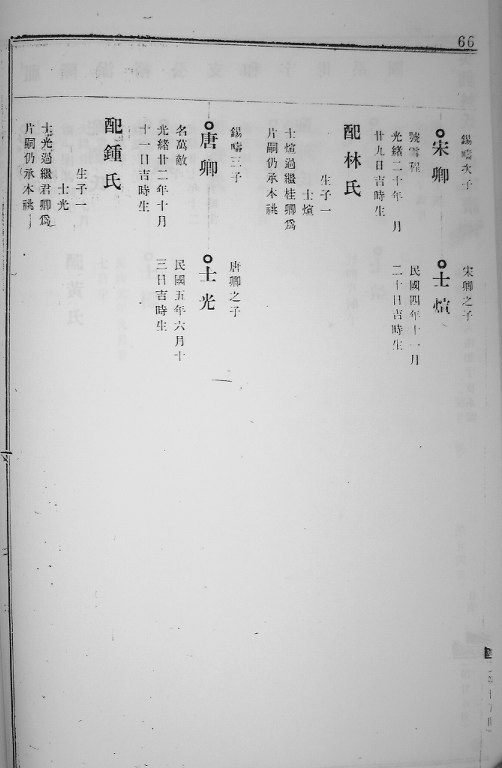 66
錫疇次子
宋卿
號雪程
光緒二十年 月
廿九日吉時生
配林氏
生子一
士煊
士煊過繼桂卿爲
片嗣仍承本祧
錫疇三子
唐卿
名萬敵
光緒廿二年十月
十一日吉時生
配鍾氏
生子一
士光
士光過繼君卿爲
片嗣仍承本祧
宋卿之子
士煊
民國四年十一月
二十日吉時生
唐卿之子
士光
民國五年六月十
三日吉時生